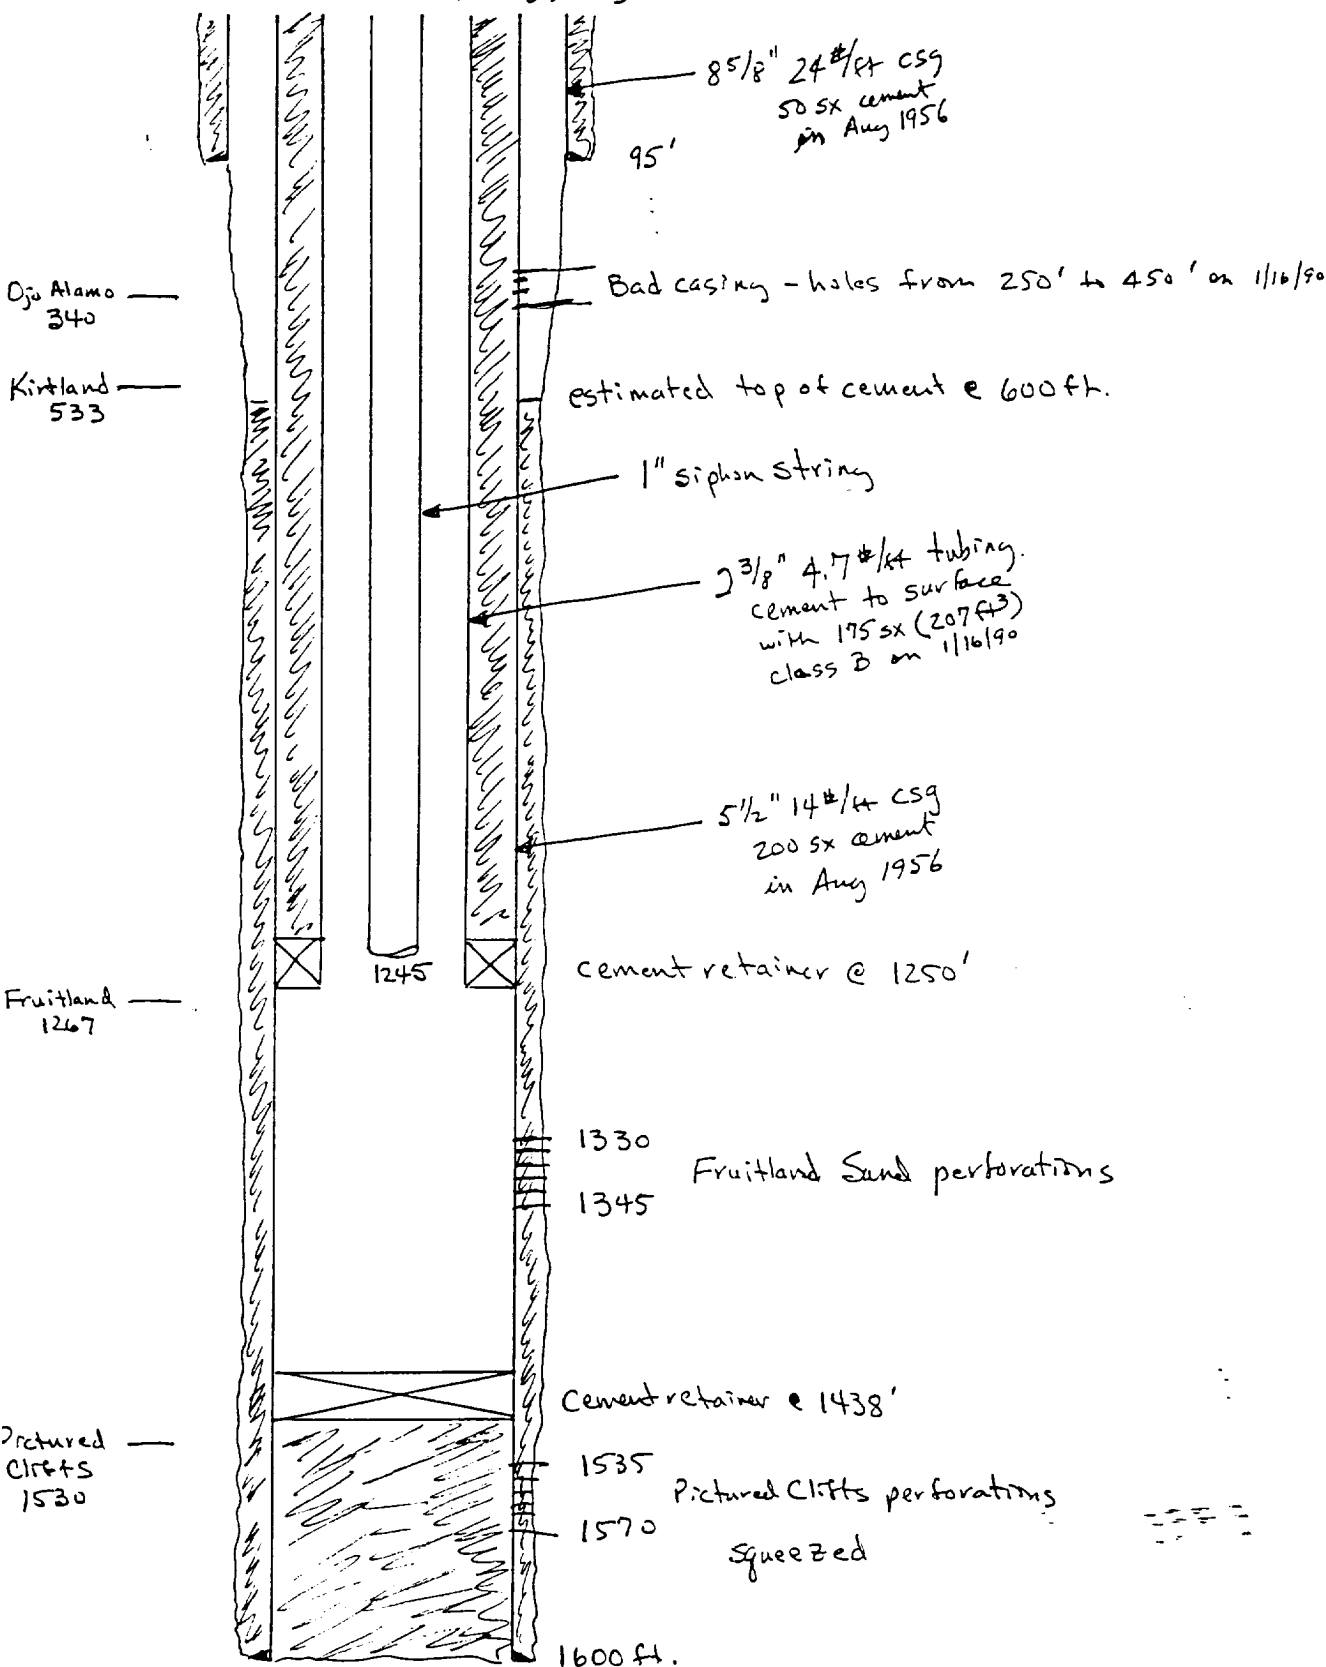 8 5/8" 24#/ft csg
50 sx cement
in Aug 1956
95'
Ojo Alamo
340
Bad casing - holes from 250' to 450' on 1/16/90
Kirtland
533
estimated top of cement @ 600 ft.
1" siphon string
2 3/8" 4.7#/ft tubing.
cement to surface
with 175 sx (207 ft3)
class B on 1/16/90
5 1/2" 14#/ft csg
200 sx cement
in Aug 1956
1245
cement retainer @ 1250'
Fruitland
1267
1330
Fruitland Sand perforations
1345
Cement retainer @ 1438'
Pictured
Cliffs
1530
1535
Pictured Cliffs perforations
1570
squeezed
1600 ft.